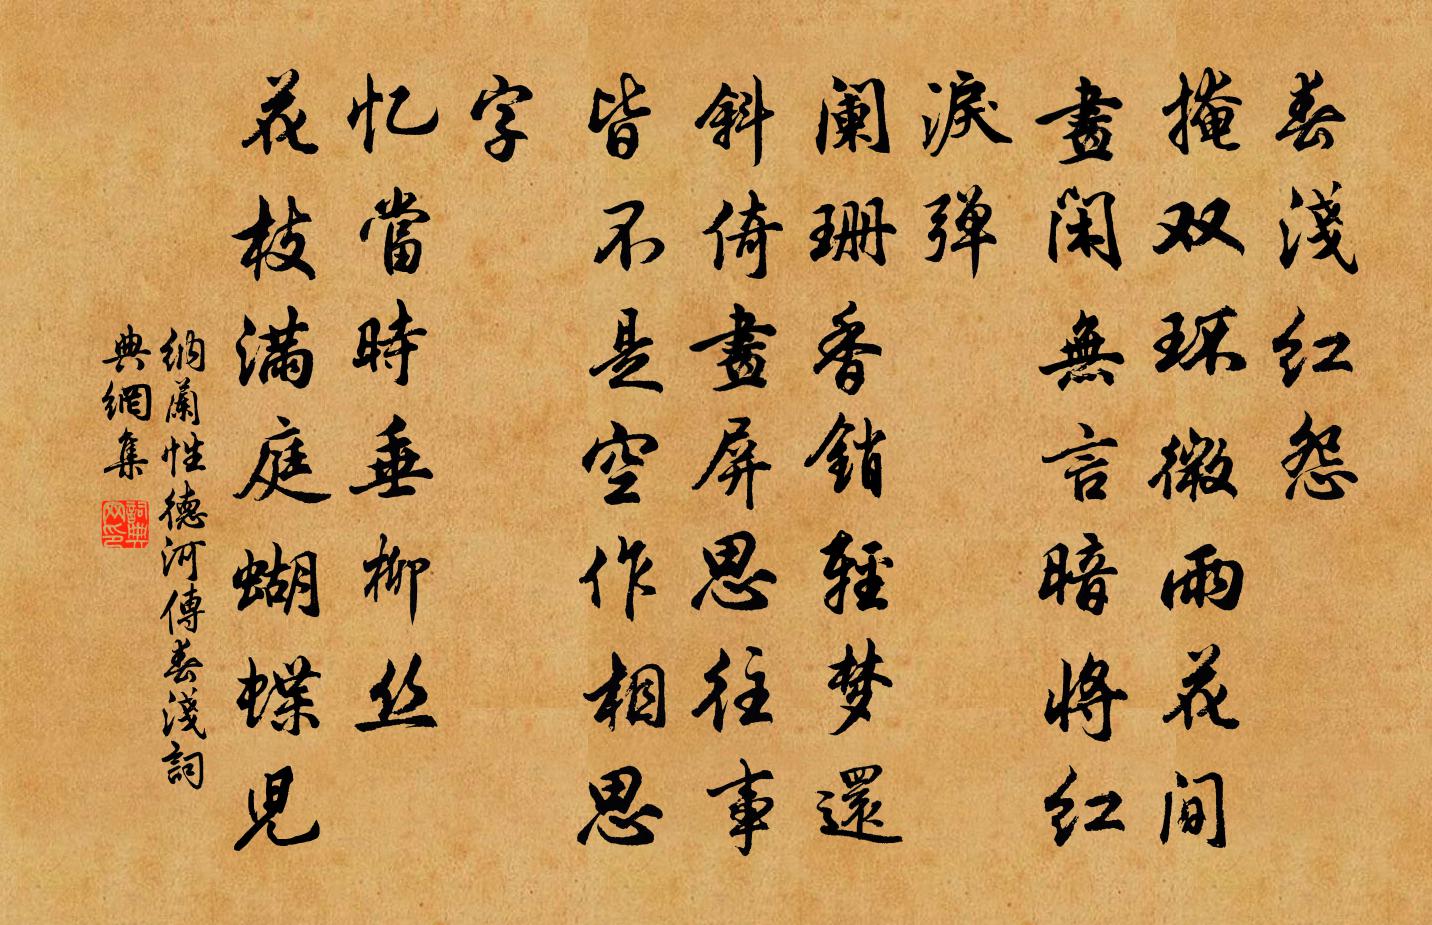 春淺红怨
掩双环微雨花间
畫闲無言暗将红
淚弹
阑珊香銷輕梦還
斜倚畫屏思往事
皆不是空作相思
字
忆當時垂柳丝
花枝满庭蝴蝶児
納蘭性德河傳春淺詞
典網集
詞典网印